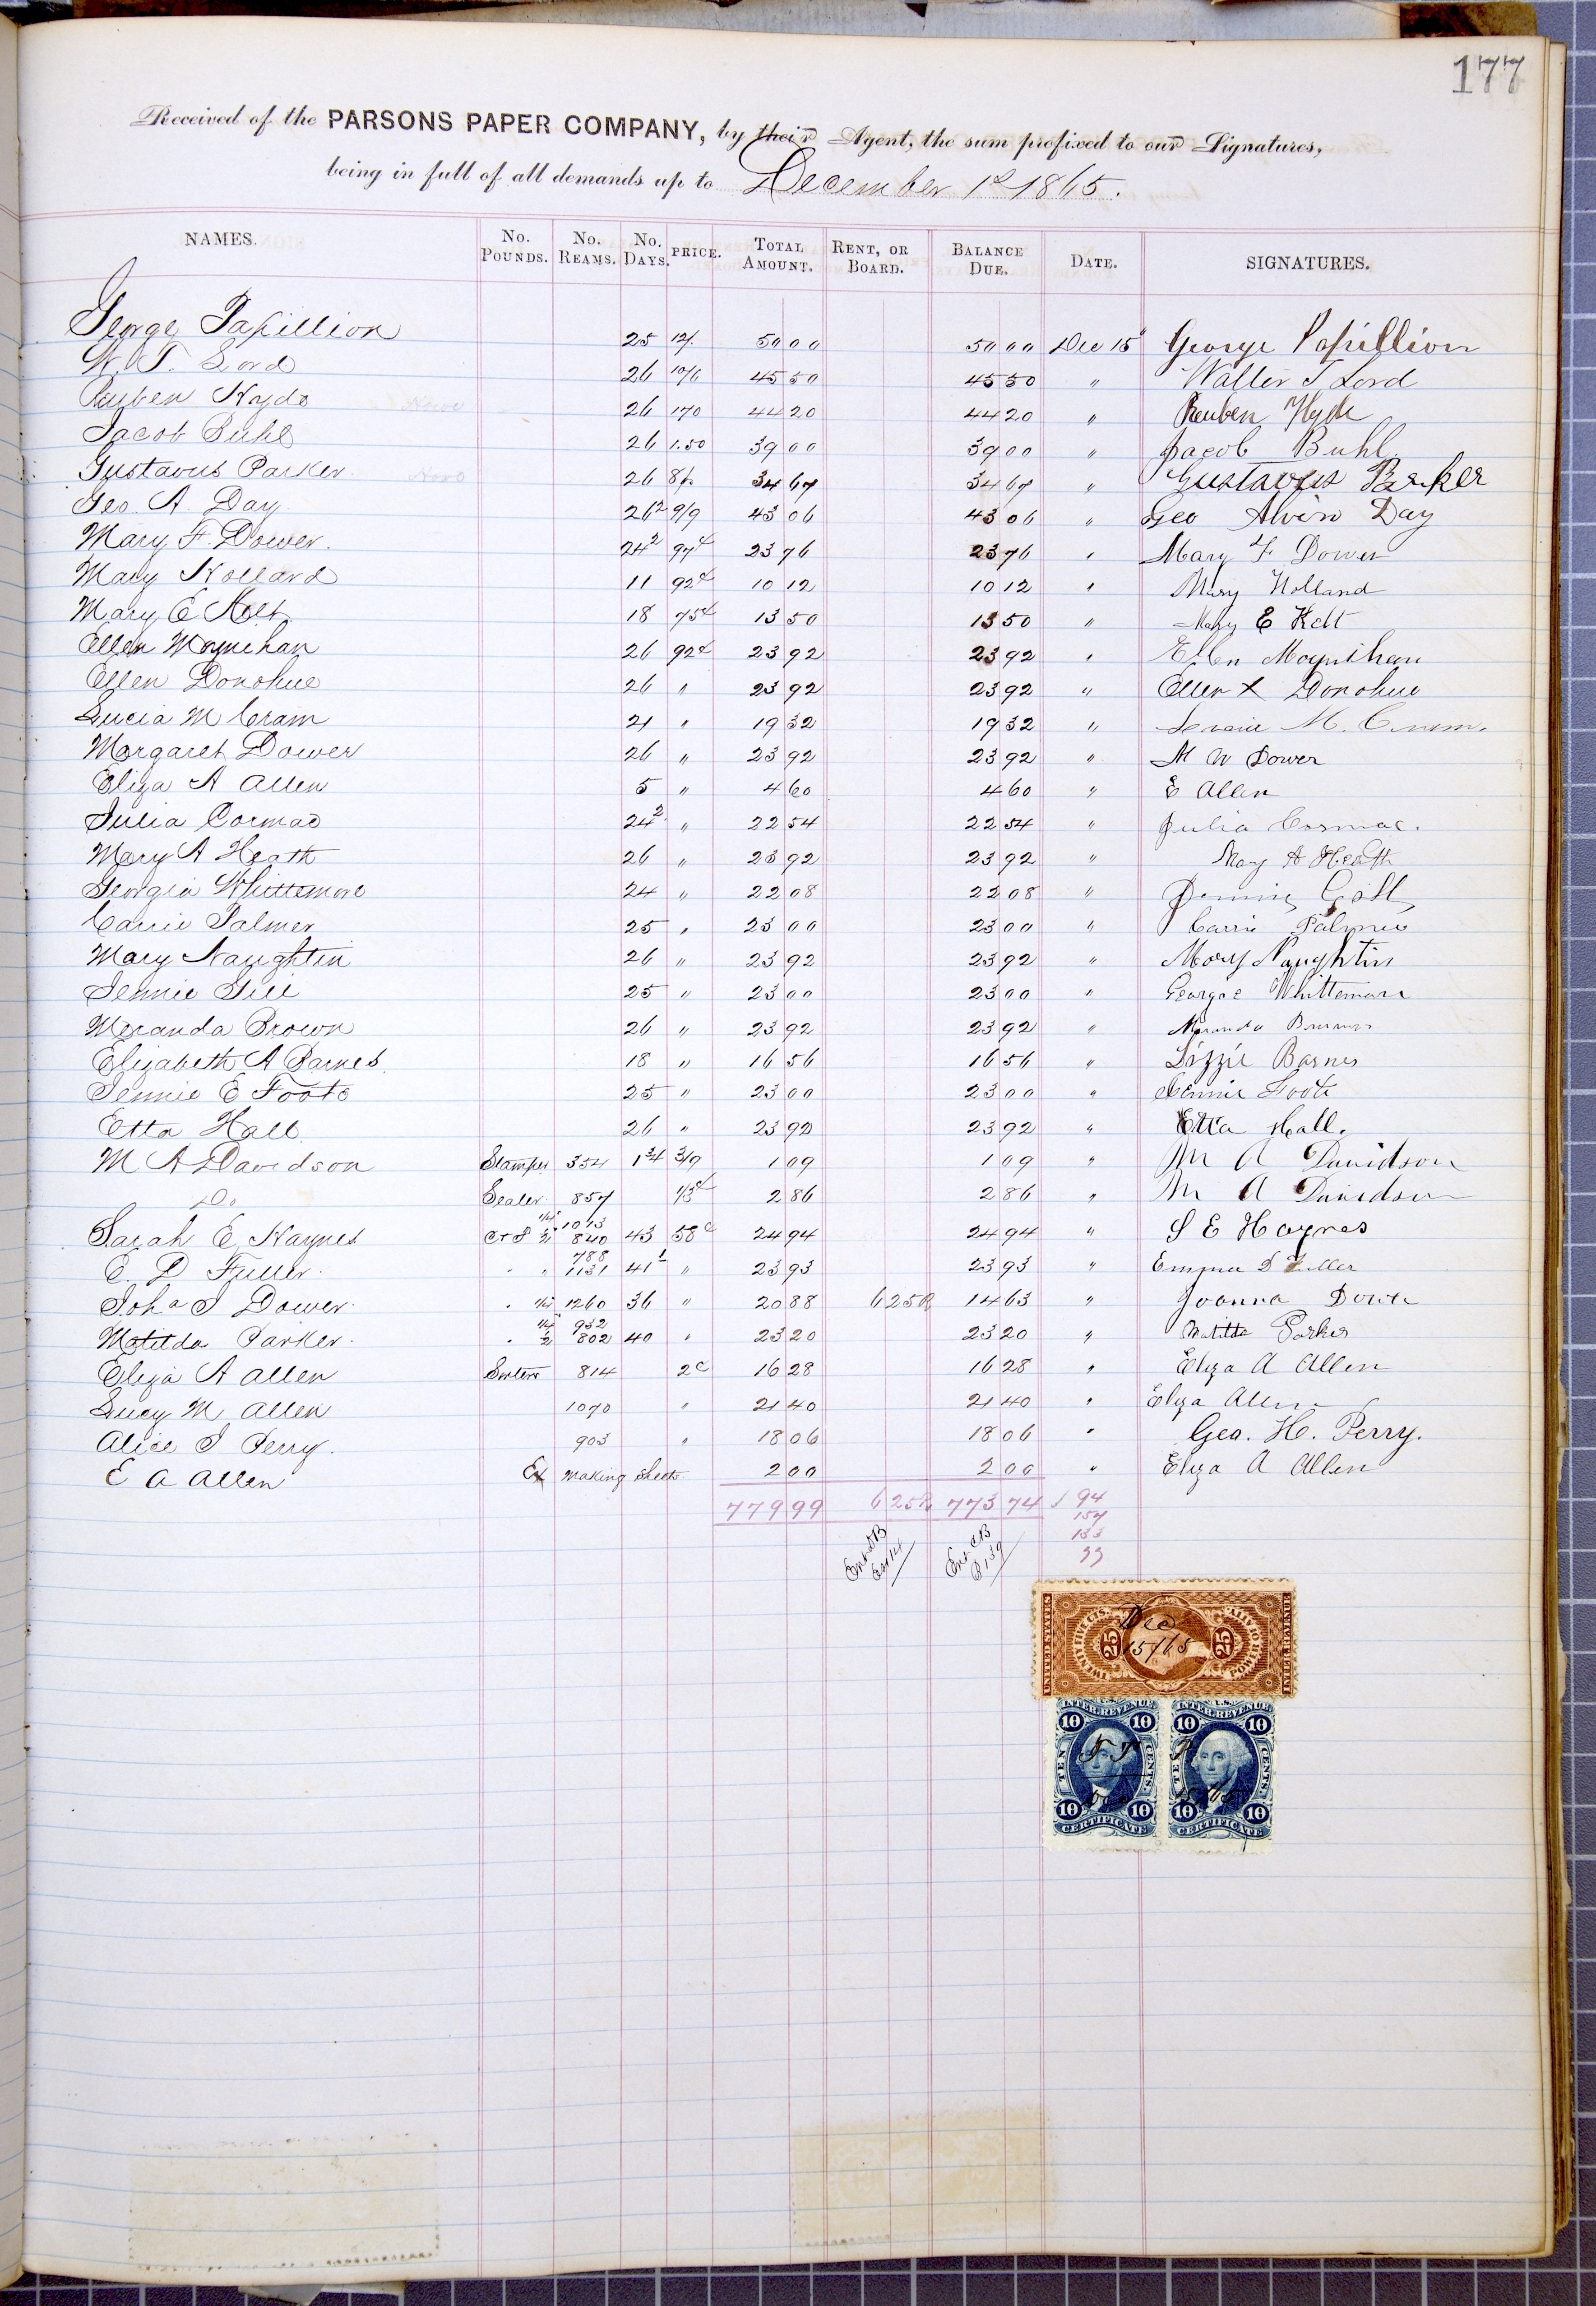 177
Received of the PARSONS PAPER COMPANY, by their Agent, the sum prefixed to our Signatures,
being in full of all demands up to December 1st 1865.
NAMES. No. POUNDS. No. REAMS. No. DAYS. PRICE. TOTAL AMOUNT. RENT, OR BOARD. BALANCE DUE. DATE. SIGNATURES.
George Papillion 25 12/. 50 00 50 00 Dec 15 George Papillion
W. T. Lord 26 10/6 45 50 45 50 " Walter T Lord
Reuben Hyde 26 170 44 20 44 20 " Reuben Hyde
Jacob Buhl 26 1.50 39 00 39 00 " Jacob Buhl.
Gustavus Parker 26 8/. 34 67 34 67 " Gustavus Parker
Geo. A. Day 26² 9/9 43 06 43 06 " Geo Alvin Day
Mary F. Dower. 24² 97c 23 76 23 76 " Mary F Dower
Mary Holland 11 92c 10 12 10 12 " Mary Holland
Mary E Kelt 18 75c 13 50 13 50 " Mary E Kelt
Ellen Moynihan 26 92c 23 92 23 92 " Ellen Moynihan
Ellen Donohue 26 " 23 92 23 92 " Ellen X Donohue
Lucia M Cram 21 " 19 32 19 32 " M. Cram.
Margaret Dower 26 " 23 92 23 92 " M W Dower
Eliza A Allen 5 " 4 60 4 60 " E Allen
Julia Cormac 24² " 22 54 22 54 " Julia Cormac.
Mary A Heath 26 " 23 92 23 92 " Mary A Heath
Georgia Whittemore 24 " 22 08 22 08 " Jennie Gill
Carrie Palmer 25 " 23 00 23 00 " Carrie Palmer
Mary Naughtin 26 " 23 92 23 92 " Mary Naughtin
Jennie Gill 25 " 23 00 23 00 " Georgie Whittemore
Meranda Brown 26 " 23 92 23 92 " Meranda Brown
Elizabeth A Barnes 18 " 16 56 16 56 " Lizzie Barnes
Jennie E Foote 25 " 23 00 23 00 " Jennie Foote
Etta Hall 26 " 23 92 23 92 " Etta Hall.
M A Davidson Stamper 354 1 3/4 3/9 1 09 1 09 " M A Davidson
Do Sealer 857 1/3c 2 86 2 86 " M A Davidson
Sarah E Haynes C & F 1/4 1013 1/2 840 43 58c 24 94 24 94 " S E Haynes
E. D Fuller. " " 788 1131 41¹ " 23 93 23 93 " Emma D Fuller
Joha J Dower. " 1/4 1260 36 " 20 88 6 25R 14 63 " Joanna Dower
Matilda Parker. " 1/4 932 1/2 802 40 " 23 20 23 20 " Matilda Parker
Eliza A Allen Sorters 814 2c 16 28 16 28 " Eliza A Allen
Lucy M Allen 1070 " 21 40 21 40 " Eliza Allen
Alice J Perry. 903 " 18 06 18 06 " Geo. H. Perry.
E A Allen Ex making sheets 2 00 2 00 " Eliza A Allen
779 99 6 25R 773 74 √ 94
157
133
99
Ent d B
Ent C B
P 139
UNITED STATES INTER. REVENUE
TWENTY FIVE CTS. 25 25 POWER OF ATT'Y
Dec
15/65
U.S. INTER. REVENUE U.S. INTER. REVENUE
10 10 10 10
TEN CENTS. TEN CENTS.
10 10 10 10
CERTIFICATE CERTIFICATE